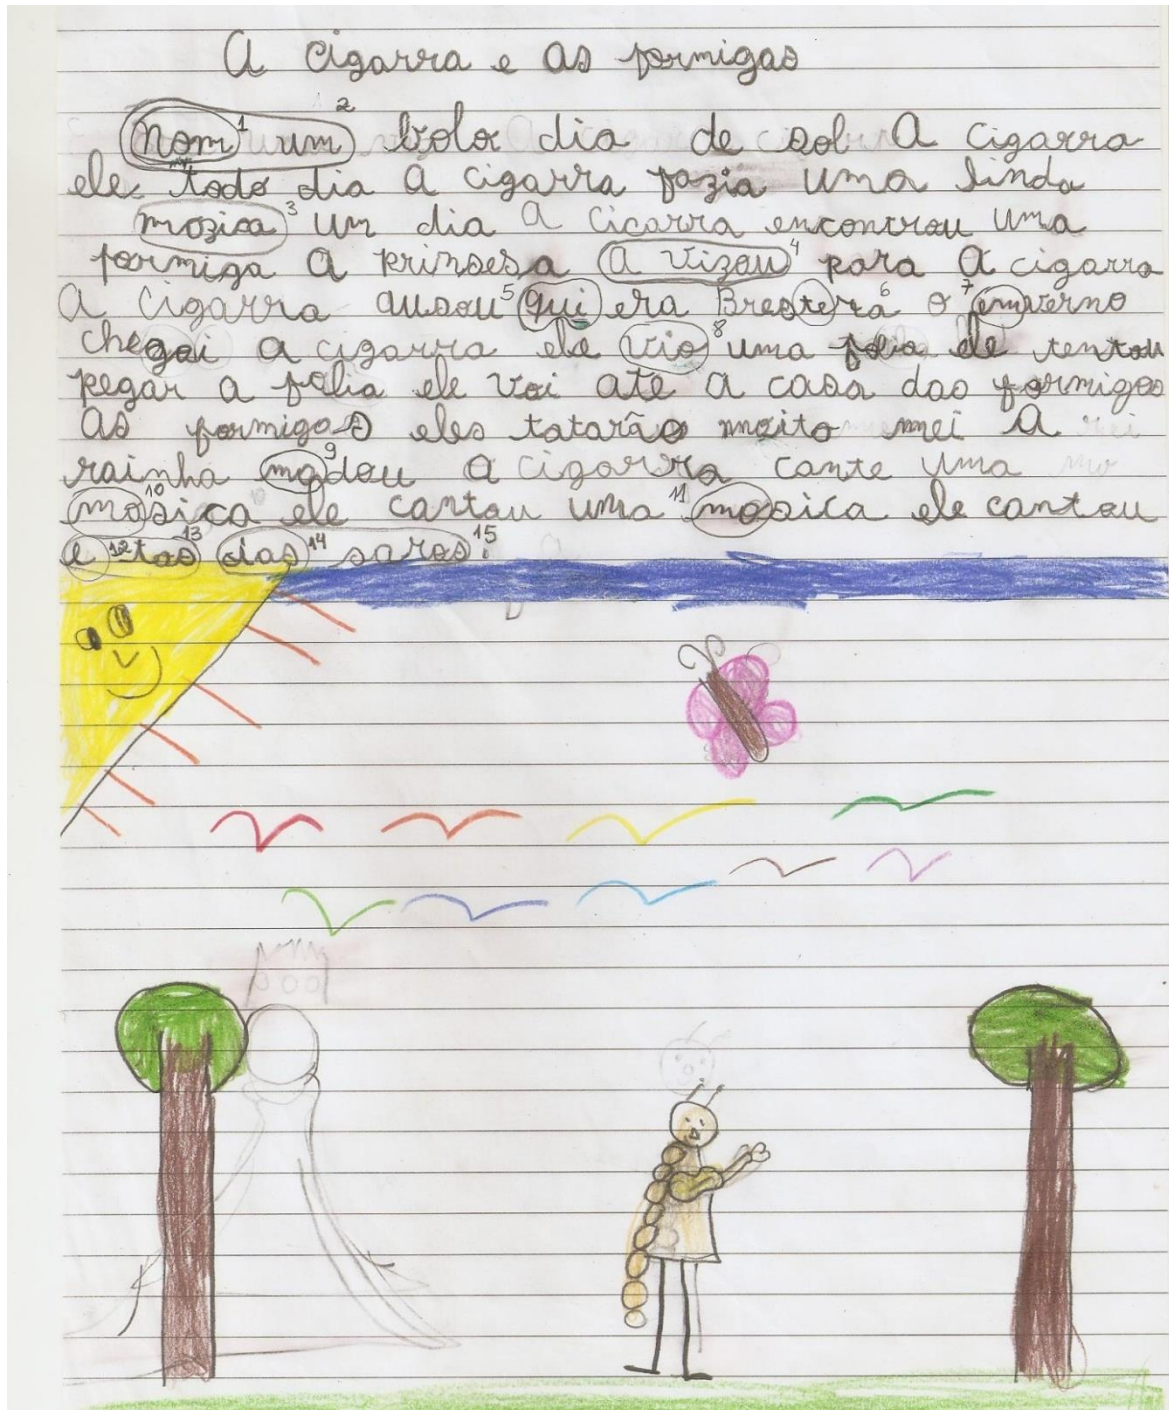 A cigarra e as formigas
nom¹ um² bolo dia de sol A cigarra
ele todo dia A cigarra fazia uma linda
mozica³ um dia A cicarra encontrou uma
formiga A prinsesa A vizou⁴ para A cigarra
A cigarra ausou⁵ qui era Bresterá⁶ o ⁷enverno
chegoi a cigarra ele vio⁸ uma folia ele tentou
pegar a folia ele voi ate a casa das formigas
As formigas eles tatarão moito mei A
rainha madou⁹ a cigarra cante uma
mosica¹⁰ ele cantou uma ¹¹mosica ele cantou
e ¹²tas¹³ dias¹⁴ saros¹⁵.